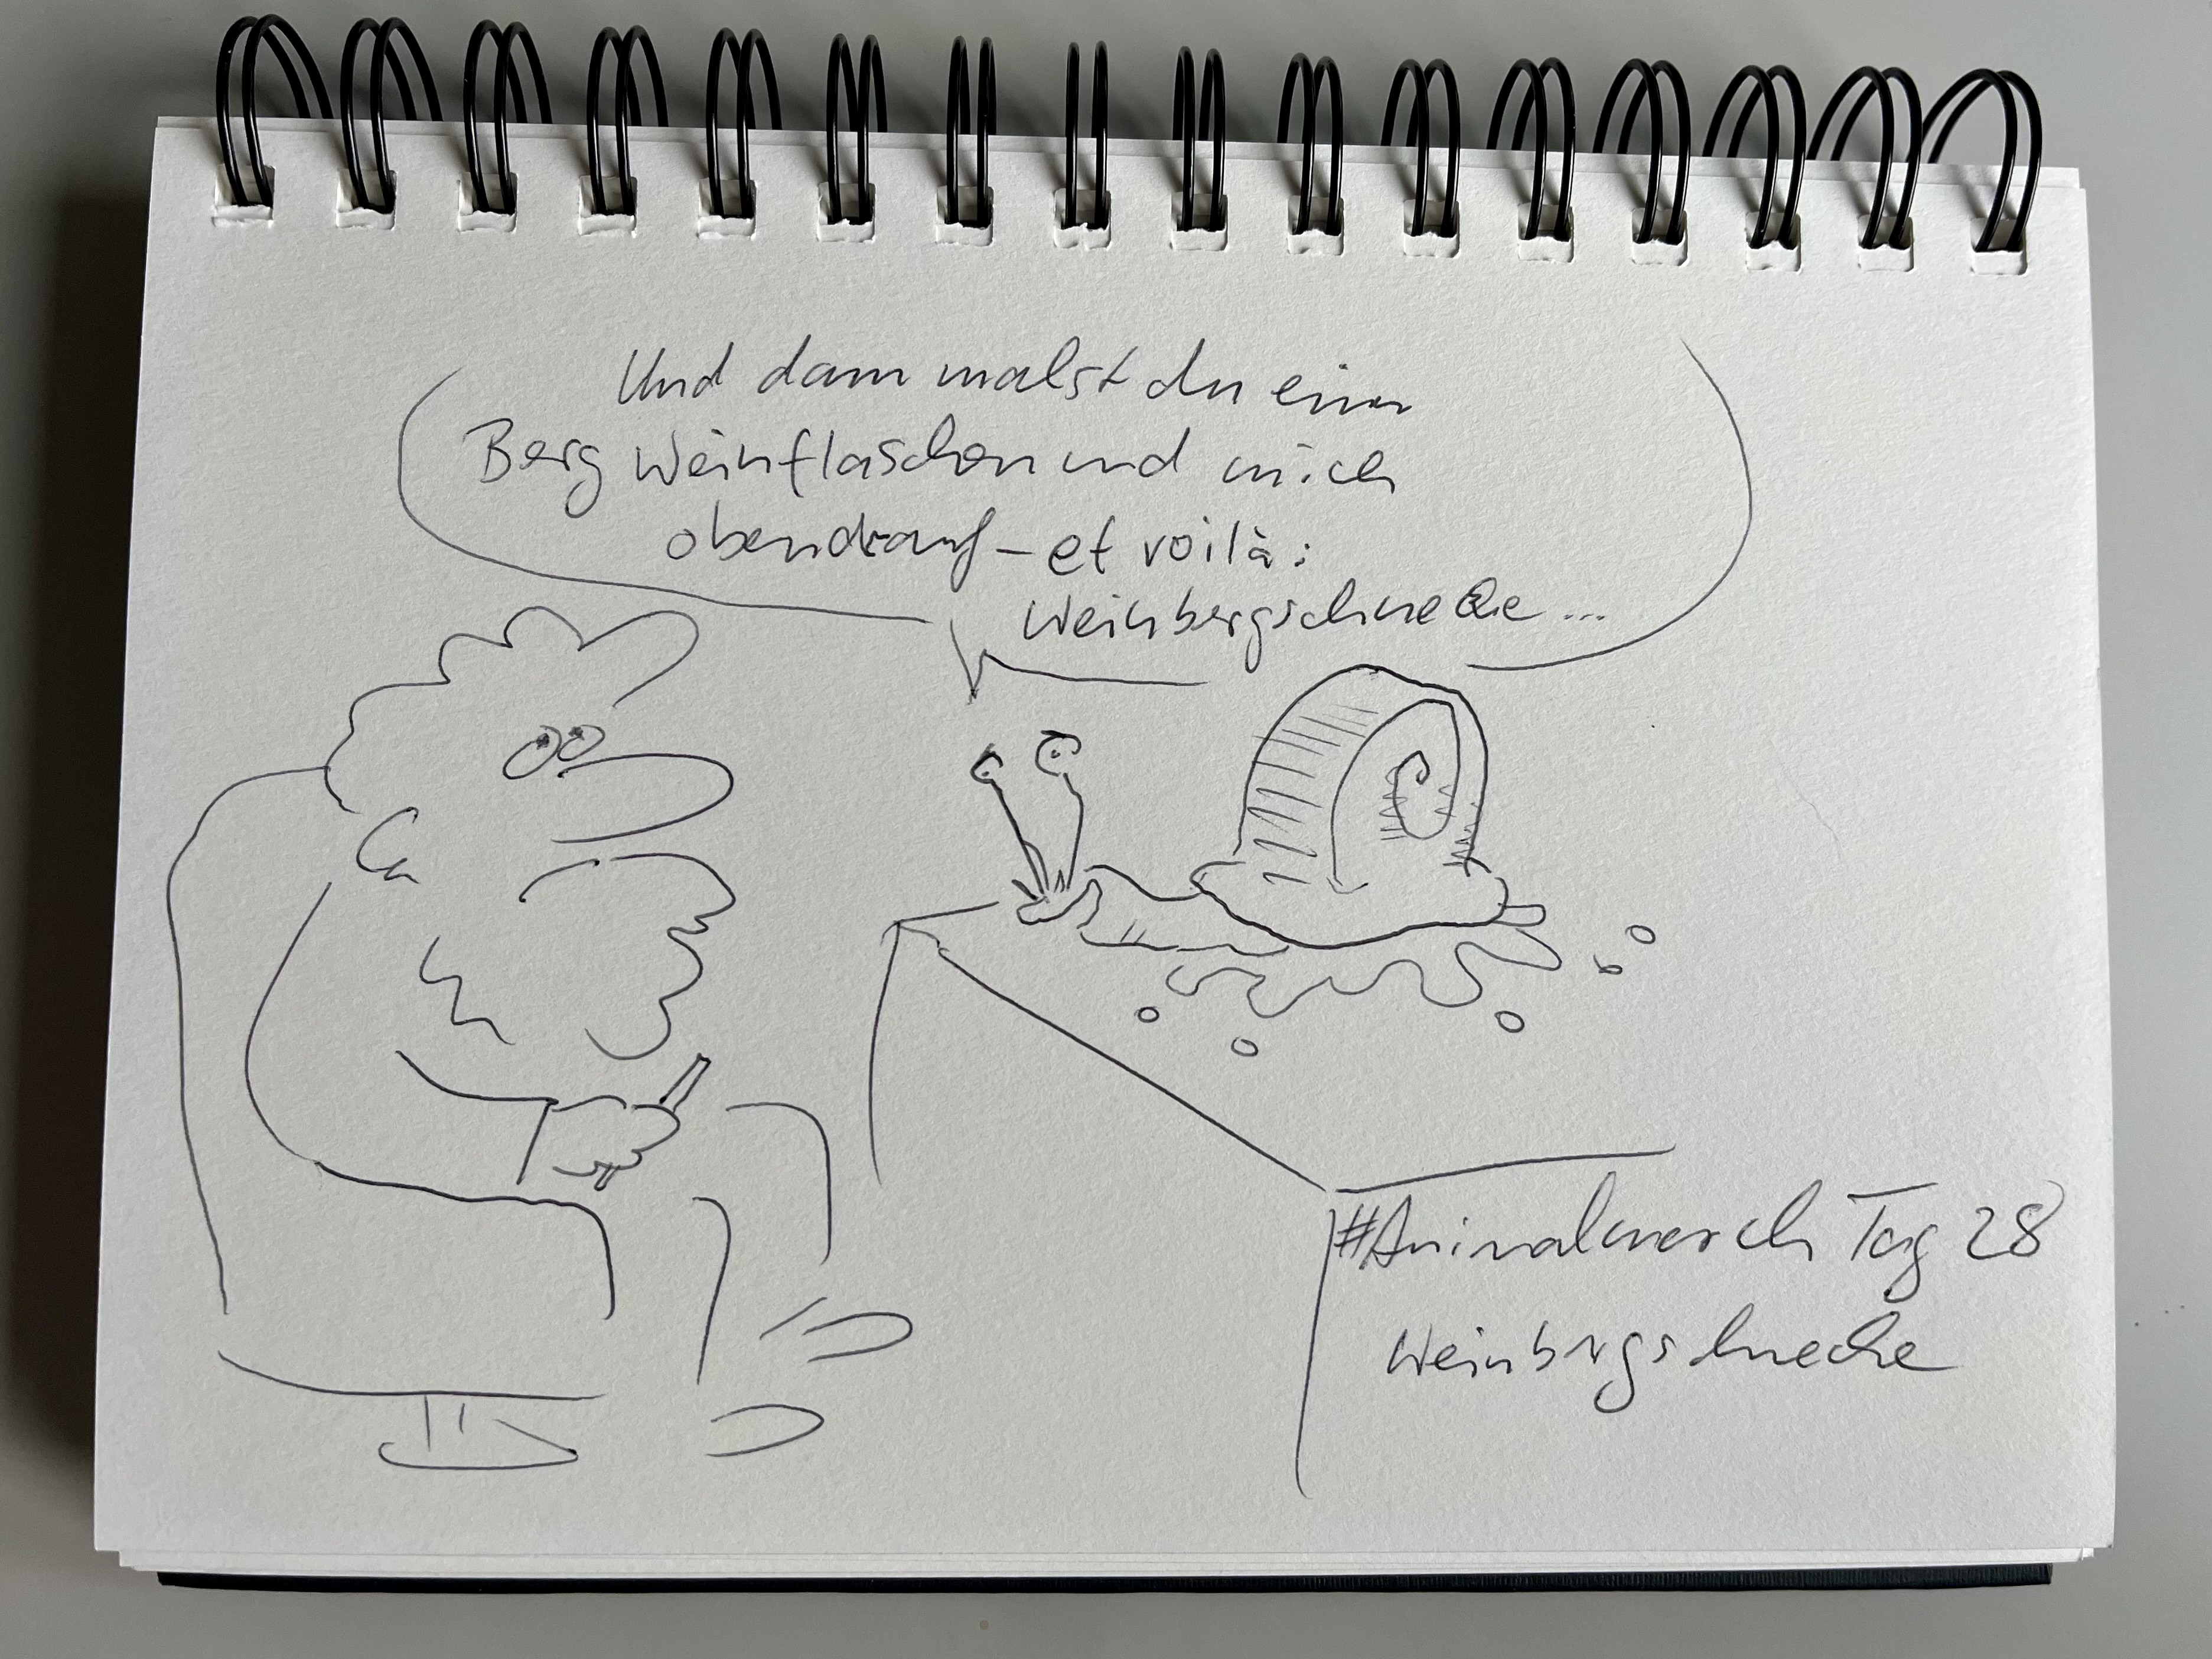 Und dann malst du einen
Berg Weinflaschen und mich
obendrauf – et voilà:
Weinbergschnecke...
#Animalmerch Tag 28
Weinbergschnecke